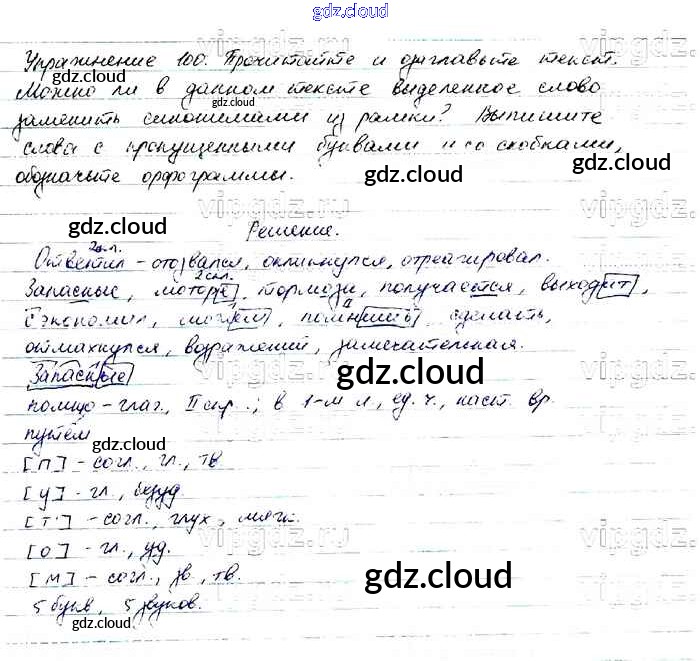 gdz.cloud
Упражнение 100. Прочитайте и озаглавьте текст.
Можно ли в данном тексте выделенное слово
заменить синонимами из рамки? Выпишите
слова с пропущенными буквами и со скобками,
обозначьте орфограммы.
Решение.
Ответил - отозвался, откликнулся, отреагировал.
Запасные, моторе, тормози, получается, выходит,
сэкономил, можем, помнишь, сделать,
отмахнулся, возражений, замечательная.
Запасные
помню - глаг., II спр.; в 1-м л, ед. ч., наст. вр.
путём
[п] - согл., гл., тв
[у] - гл., безуд.
[т'] - согл., глух., мягк.
[о] - гл., уд.
[м] - согл., зв., тв.
5 букв, 5 звуков.